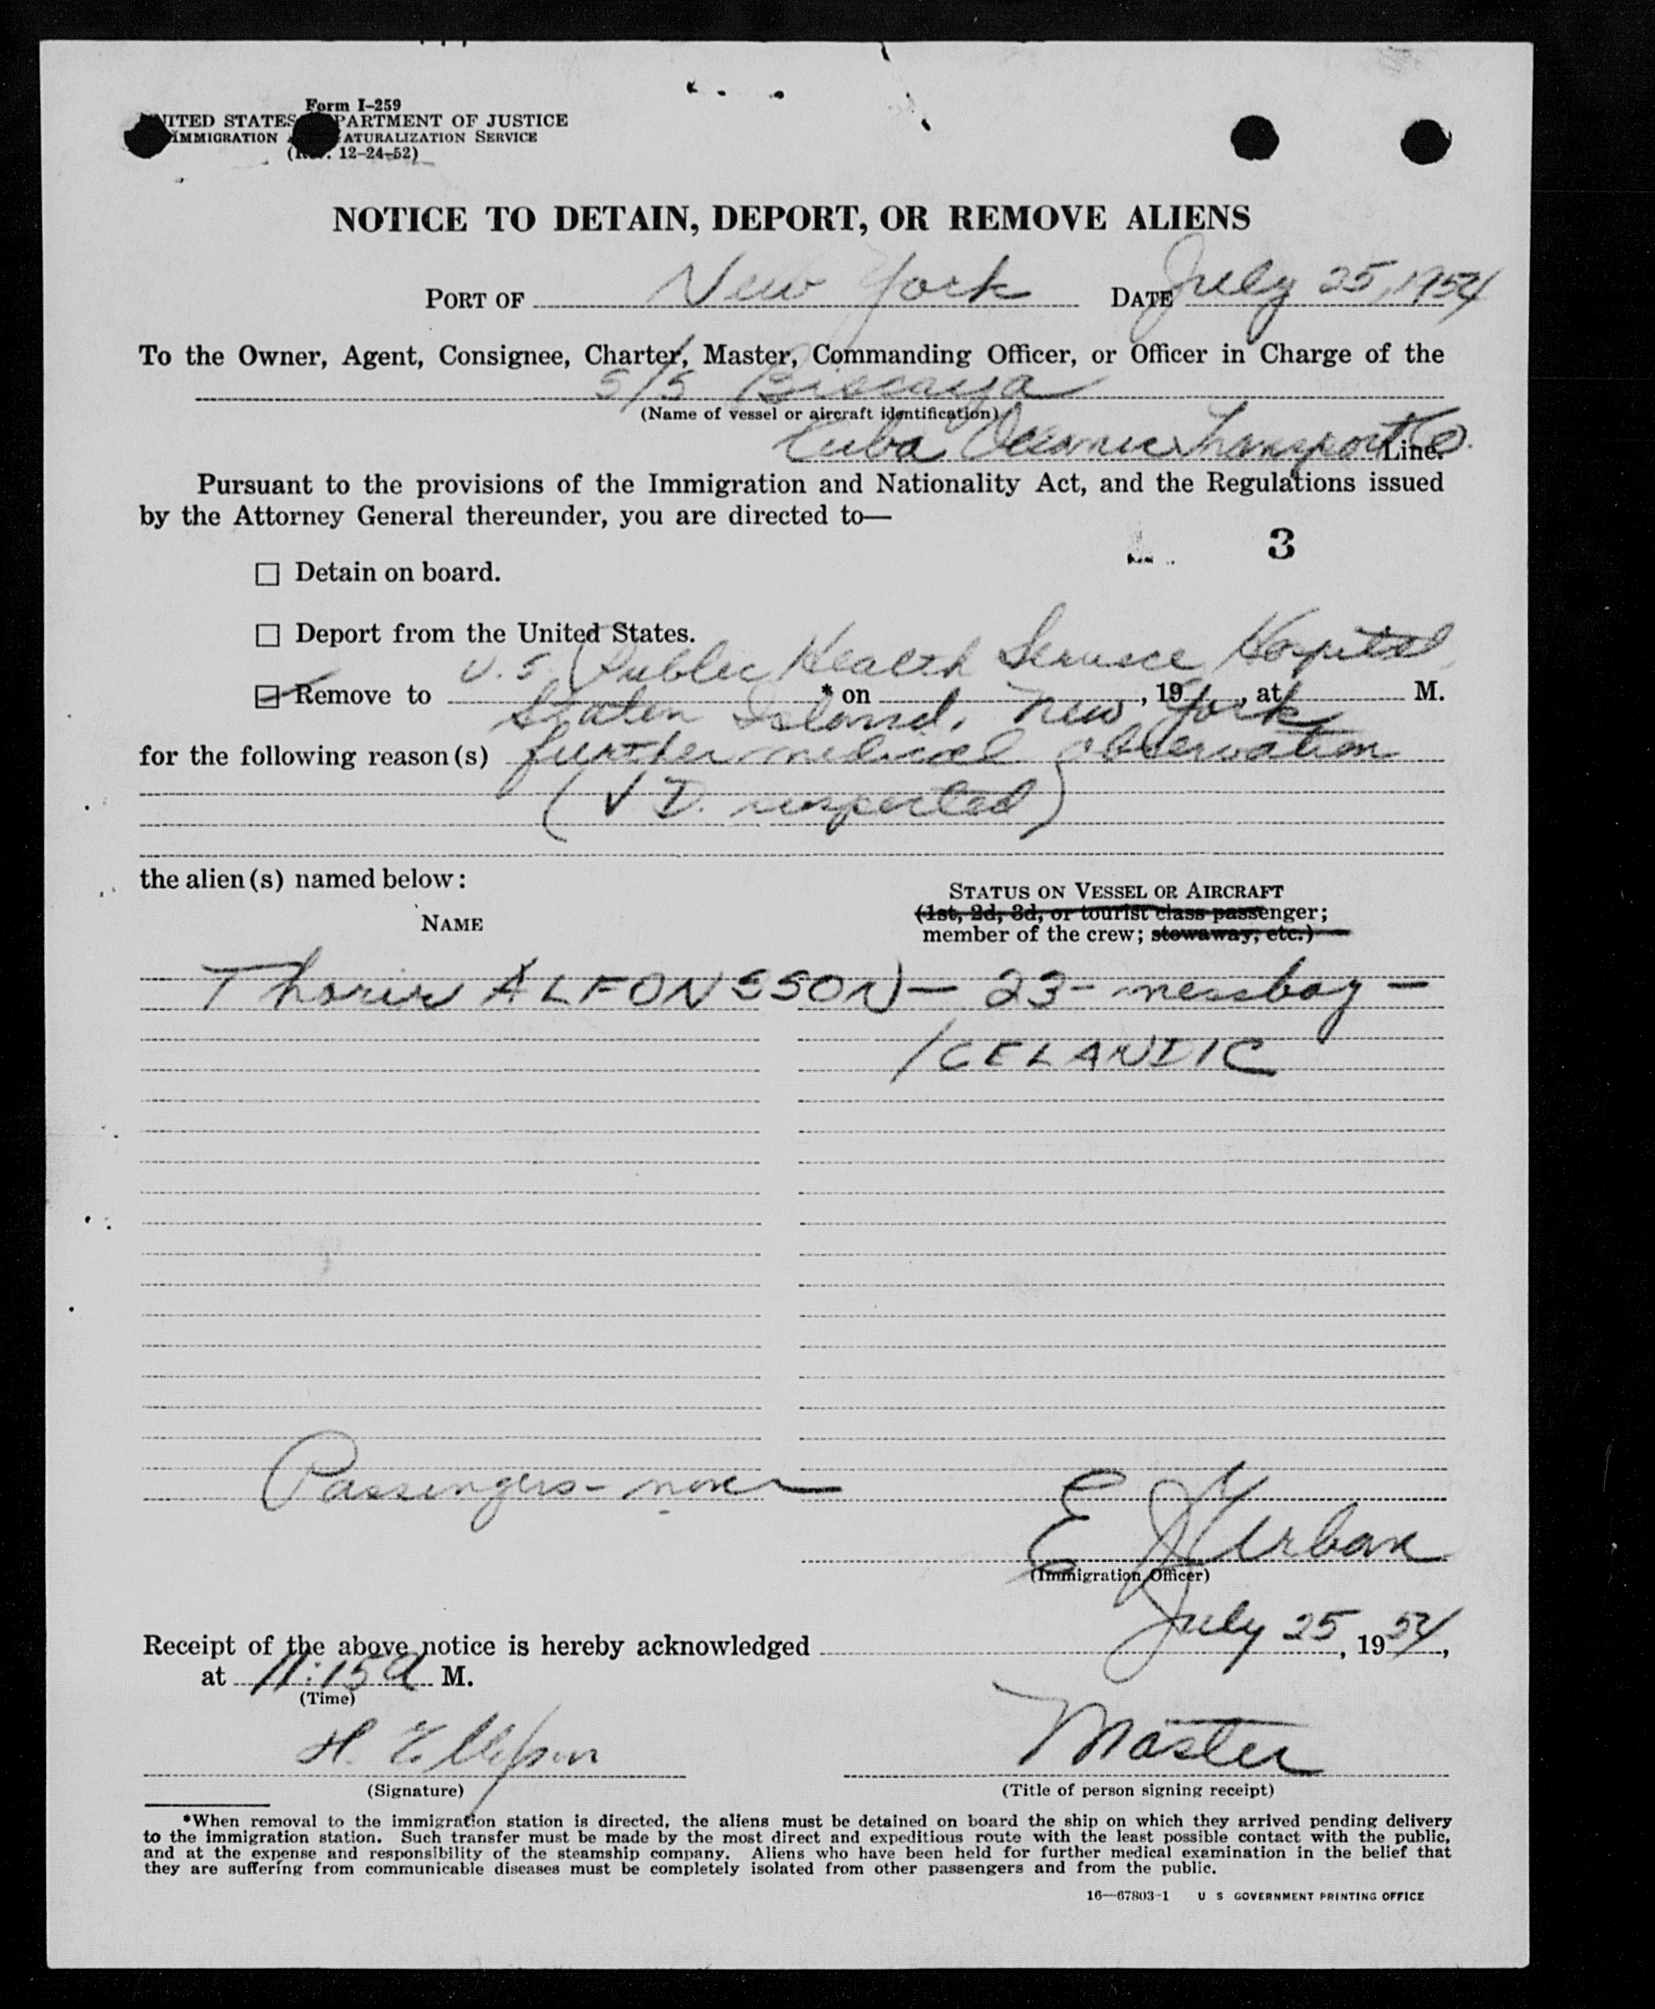 Form I-259
UNITED STATES DEPARTMENT OF JUSTICE
IMMIGRATION NATURALIZATION SERVICE
(Rev. 12-24-52)
NOTICE TO DETAIN, DEPORT, OR REMOVE ALIENS
PORT OF New York DATE July 25, 1954
To the Owner, Agent, Consignee, Charter, Master, Commanding Officer, or Officer in Charge of the
S/S Biscaya
(Name of vessel or aircraft identification)
Cuba Oceanic Transport Co. Line.
Pursuant to the provisions of the Immigration and Nationality Act, and the Regulations issued
by the Attorney General thereunder, you are directed to—
3
☐ Detain on board.
☐ Deport from the United States.
U.S. Public Health Service Hospital
☑ Remove to * on , 19 , at M.
Staten Island, New York
for the following reason(s) further medical observation
(VD. suspected)
the alien(s) named below:
STATUS ON VESSEL OR AIRCRAFT
NAME (1st, 2d, 3d, or tourist class passenger;
member of the crew; stowaway, etc.)
Thorir ALFONSSON — 23 - messboy —
ICELANDIC
Passengers - none
E J Urban
(Immigration Officer)
Receipt of the above notice is hereby acknowledged July 25, 1954,
at 11:15 A M.
(Time)
H. Master
(Signature) (Title of person signing receipt)
*When removal to the immigration station is directed, the aliens must be detained on board the ship on which they arrived pending delivery
to the immigration station. Such transfer must be made by the most direct and expeditious route with the least possible contact with the public,
and at the expense and responsibility of the steamship company. Aliens who have been held for further medical examination in the belief that
they are suffering from communicable diseases must be completely isolated from other passengers and from the public.
16—67803-1 U S GOVERNMENT PRINTING OFFICE